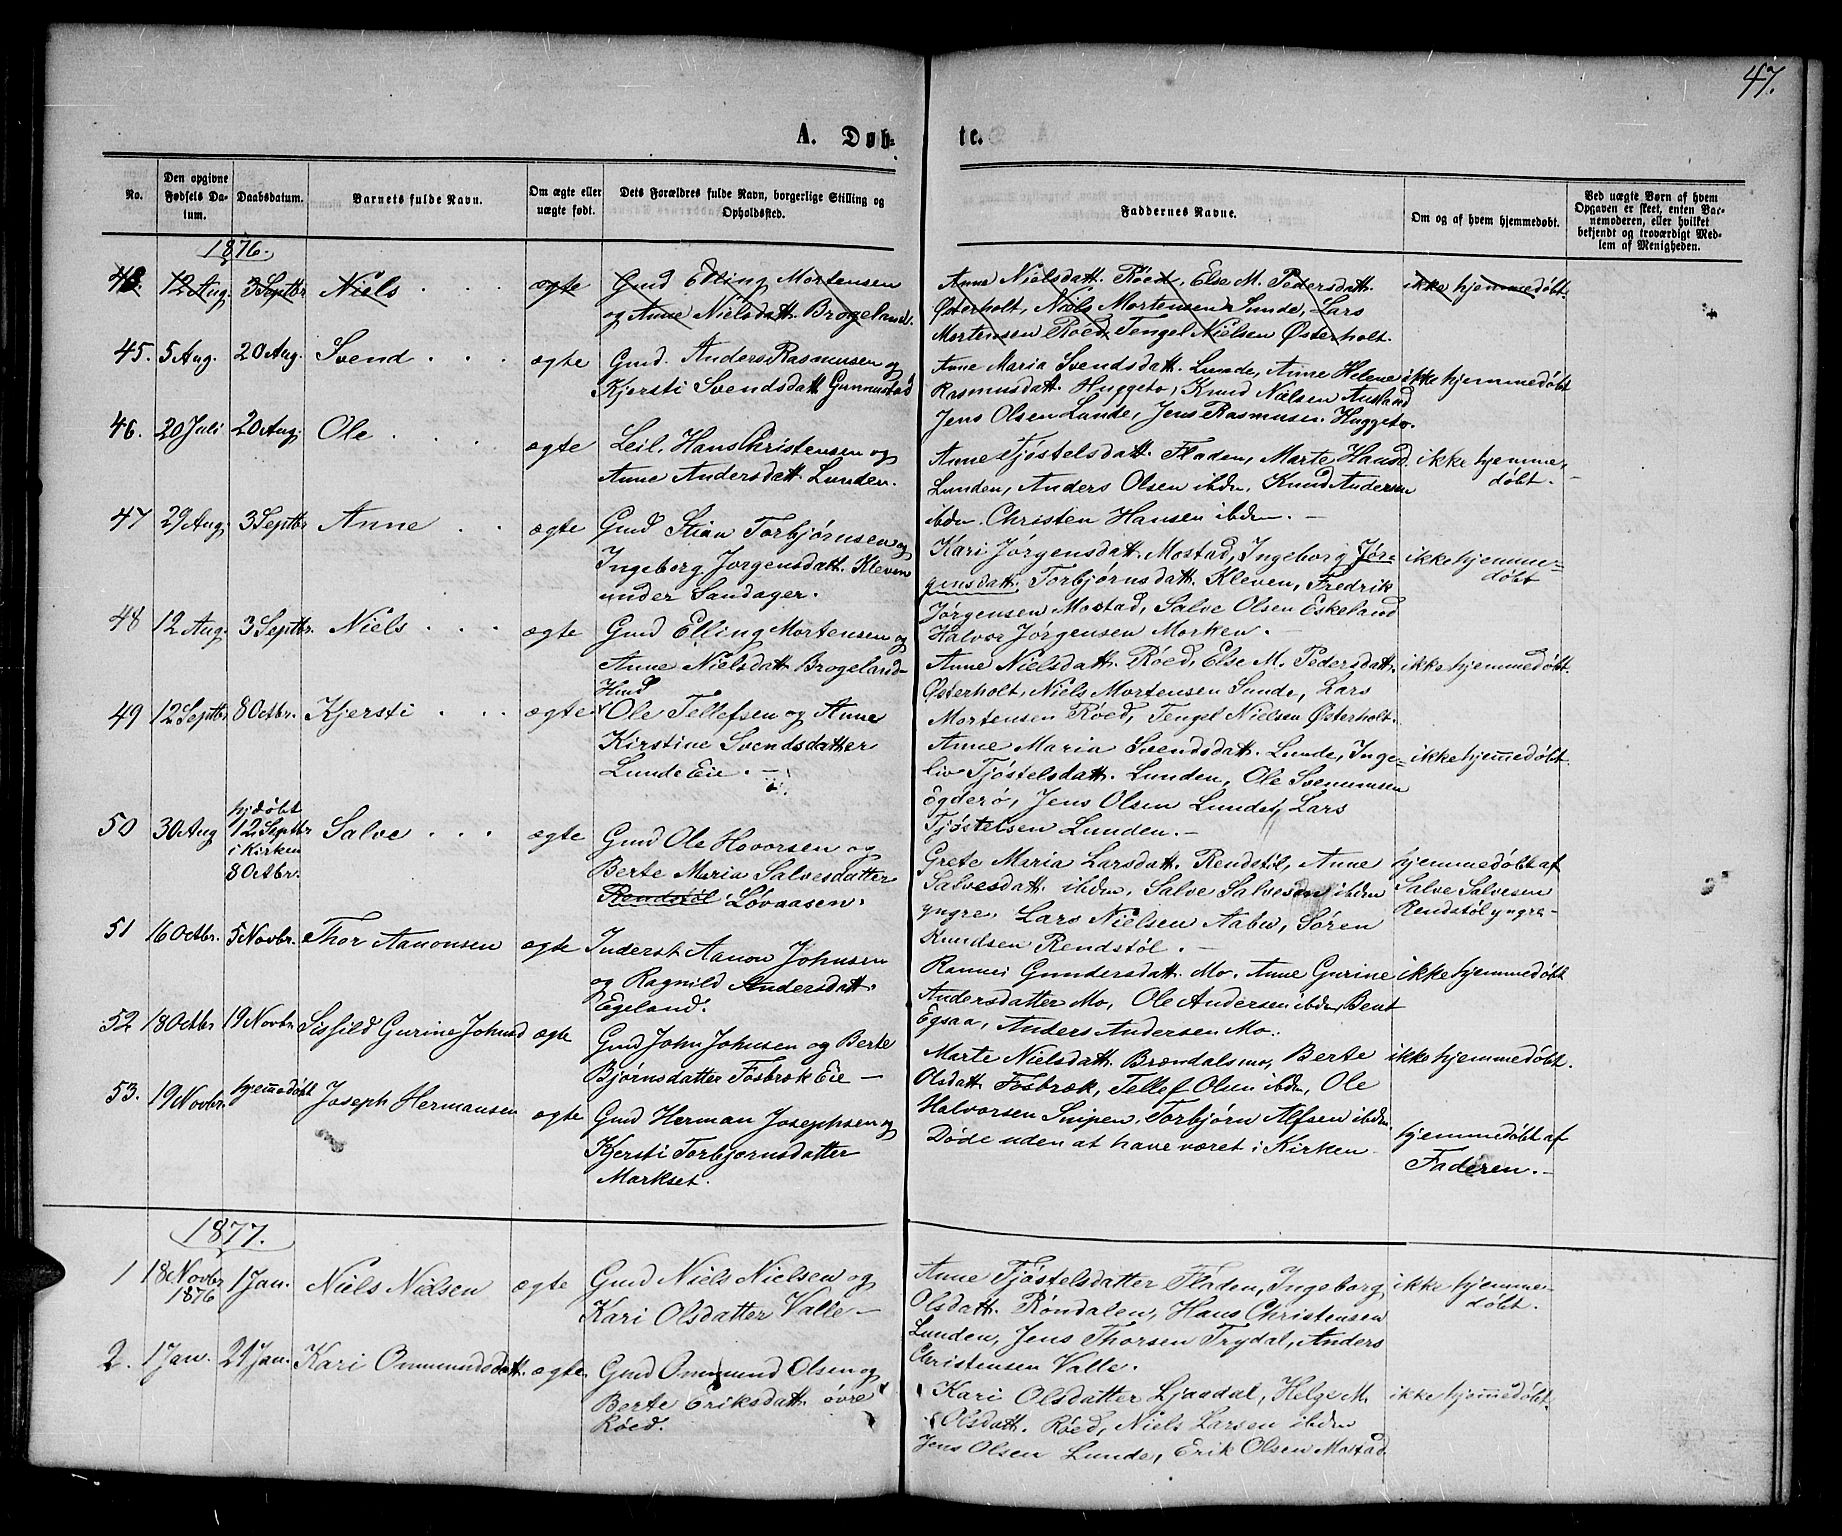 47.
A. Døb-
te.
No.
Den opgivne
Fødsels Da-
tum.
Daabsdatum.
Barnets fulde Navn.
Om ægte eller
uægte født.
Dets Forældres fulde Navn, borgerlige Stilling og
Opholdssted.
Faddernes Navne.
Om og af hvem hjemmedøbt.
Ved uægte Børn af hvem
Opgaven er skeet, enten Bar-
nemoderen, eller hvilket
bekjendt og troværdigt Med-
lem af Menigheden.
1876.
48. 12 Aug. 3 Septbr Niels . . . ægte
Gmd Elling Mortensen
og Anne Nielsdatt. Brogeland.
Anne Nielsdatt. Røed, Else M. Pedersdatt.
Østerholt, Niels Mortensen Lunde, Lars
Mortensen Røed, Tengel Nielsen Østerholt.
ikke hjemmedøbt.
45. 5 Aug. 20 Aug. Svend . . . ægte
Gmd. Anders Rasmusen og
Kjersti Svendsdatt. Gunnustad
Anne Maria Svendsdatt. Lunde, Anne Helene
Rasmusdatt. Huggeto, Knud Nielsen Austad
Jens Olsen Lunde, Jens Rasmusen Huggeto.
ikke hjemmedøbt
46. 20 Juli 20 Aug. Ole . . . . ægte
Leil. Hans Christensen og
Anne Andersdatt. Lunden.
Anne Tjøstelsdatt. Fladen, Marte Hansd.
Lunden, Anders Olsen ibdn, Knud Andersen
ibdn. Christen Hansen ibdn. –
ikke hjemme-
døbt. –
47 29 Aug. 3 Septbr Anne . . ægte
Gmd Stian Torbjørnsen og
Ingeborg Jørgensdatt. Kleven
under Sandager.
Kari Jørgensdatt. Mostad, Ingeborg Jør-
gensdatt. Torbjørnsdatt. Kleven, Fredrik
Jørgensen Mostad, Salve Olsen Eskeland
Halvor Jørgensen Morken. –
ikke hjemme-
døbt
48 12 Aug. 3 Septbr. Niels . . . ægte
Gmd Elling Mortensen og
Anne Nielsdatt. Brogeland–
Anne Nielsdatt. Røed, Else M. Pedersdatt.
Østerholt, Niels Mortensen Lunde, Lars
Mortensen Røed, Tengel Nielsen Østerholt.
ikke hjemmedøbt.
49 12 Septbr. 8 Octbr. Kjersti . . . ægte
Hmd
Ole Tellefsen og Anne
Kirstine Svendsdatter
Lunde Eie. –
Anne Maria Svendsdatt. Lunde, Inge-
liv Tjøstelsdatt. Lunden, Ole Svenumsen
Egderø, Jens Olsen Lunde, Lars
Tjøstelsen Lunden. –
ikke hjemmedøbt.
50 30 Aug
hjdøbt
12 Septbr
i Kirken
8 Octbr.
Salve . . . ægte
Gmd Ole Hovorsen og
Berte Maria Salvesdatter
Rendstøl Løvaasen.
Grete Maria Larsdatt. Rendstøl, Anne
Salvesdatt. ibdn, Salve Salvesen ibdn
yngre, Lars Nielsen Aabu, Søren
Knudsen Rendstøl. –
hjemmedøbt af
Salve Salvesen
Rendstøl yngre–
51 16 Octbr. 5 Novbr. Thor Aanonsen ægte
Inderst Aanon Johnsen
og Ragnild Andersdatt.
Egeland.
Rannei Gundersdatt. Mo. Anne Gurine
Andersdatter Mo, Ole Andersen ibdn, Bent
Egsaa, Anders Andersen Mo..
ikke hjemmedøbt
52 18 Octbr 19 Novbr. Sisfild Gurine Johnsd ægte
Gmd John Johnsen og Berte
Bjørnsdatter Fosbræk Eie –
Marte Nielsdatt. Brøndalsmo, Berte
Olsdatt. Fosbræk, Tellef Olsen ibdn, Ole
Halvorsen Snipen, Torbjørn Alfsen ibdn.
ikke hjemmedøbt.
53. 19 Novbr. hjemmedøbt Joseph Hermansen ægte
Gmd Herman Josephsen og
Kjersti Torbjørnsdatter
Markset.
Døde uden at have været i Kirken
hjemmedøbt af
Faderen. –
1877.
1 18 Novbr
1876
1 Jan. Niels Nielsen ægte
Gmd Niels Nielsen og
Kari Olsdatter Valle –
Anne Tjøstelsdatter Fladen, Ingeborg
Olsdatt. Røndalen, Hans Christensen
Lunden, Jens Thorsen Trydal, Anders
Christensen Valle.
ikke hjemme-
døbt.
2. 1 Jan. 21 Jan. Kari Ommundsdatt. ægte.
Gmd Ommund Olsen og
Berte Eriksdatt. øvre
Røed.
Kari Olsdatter Ljaadal, Helge M.
Olsdatt. Røed, Niels Larsen ibdn
Jens Olsen Lunde, Erik Olsen Mostad
ikke hjemmedøbt.